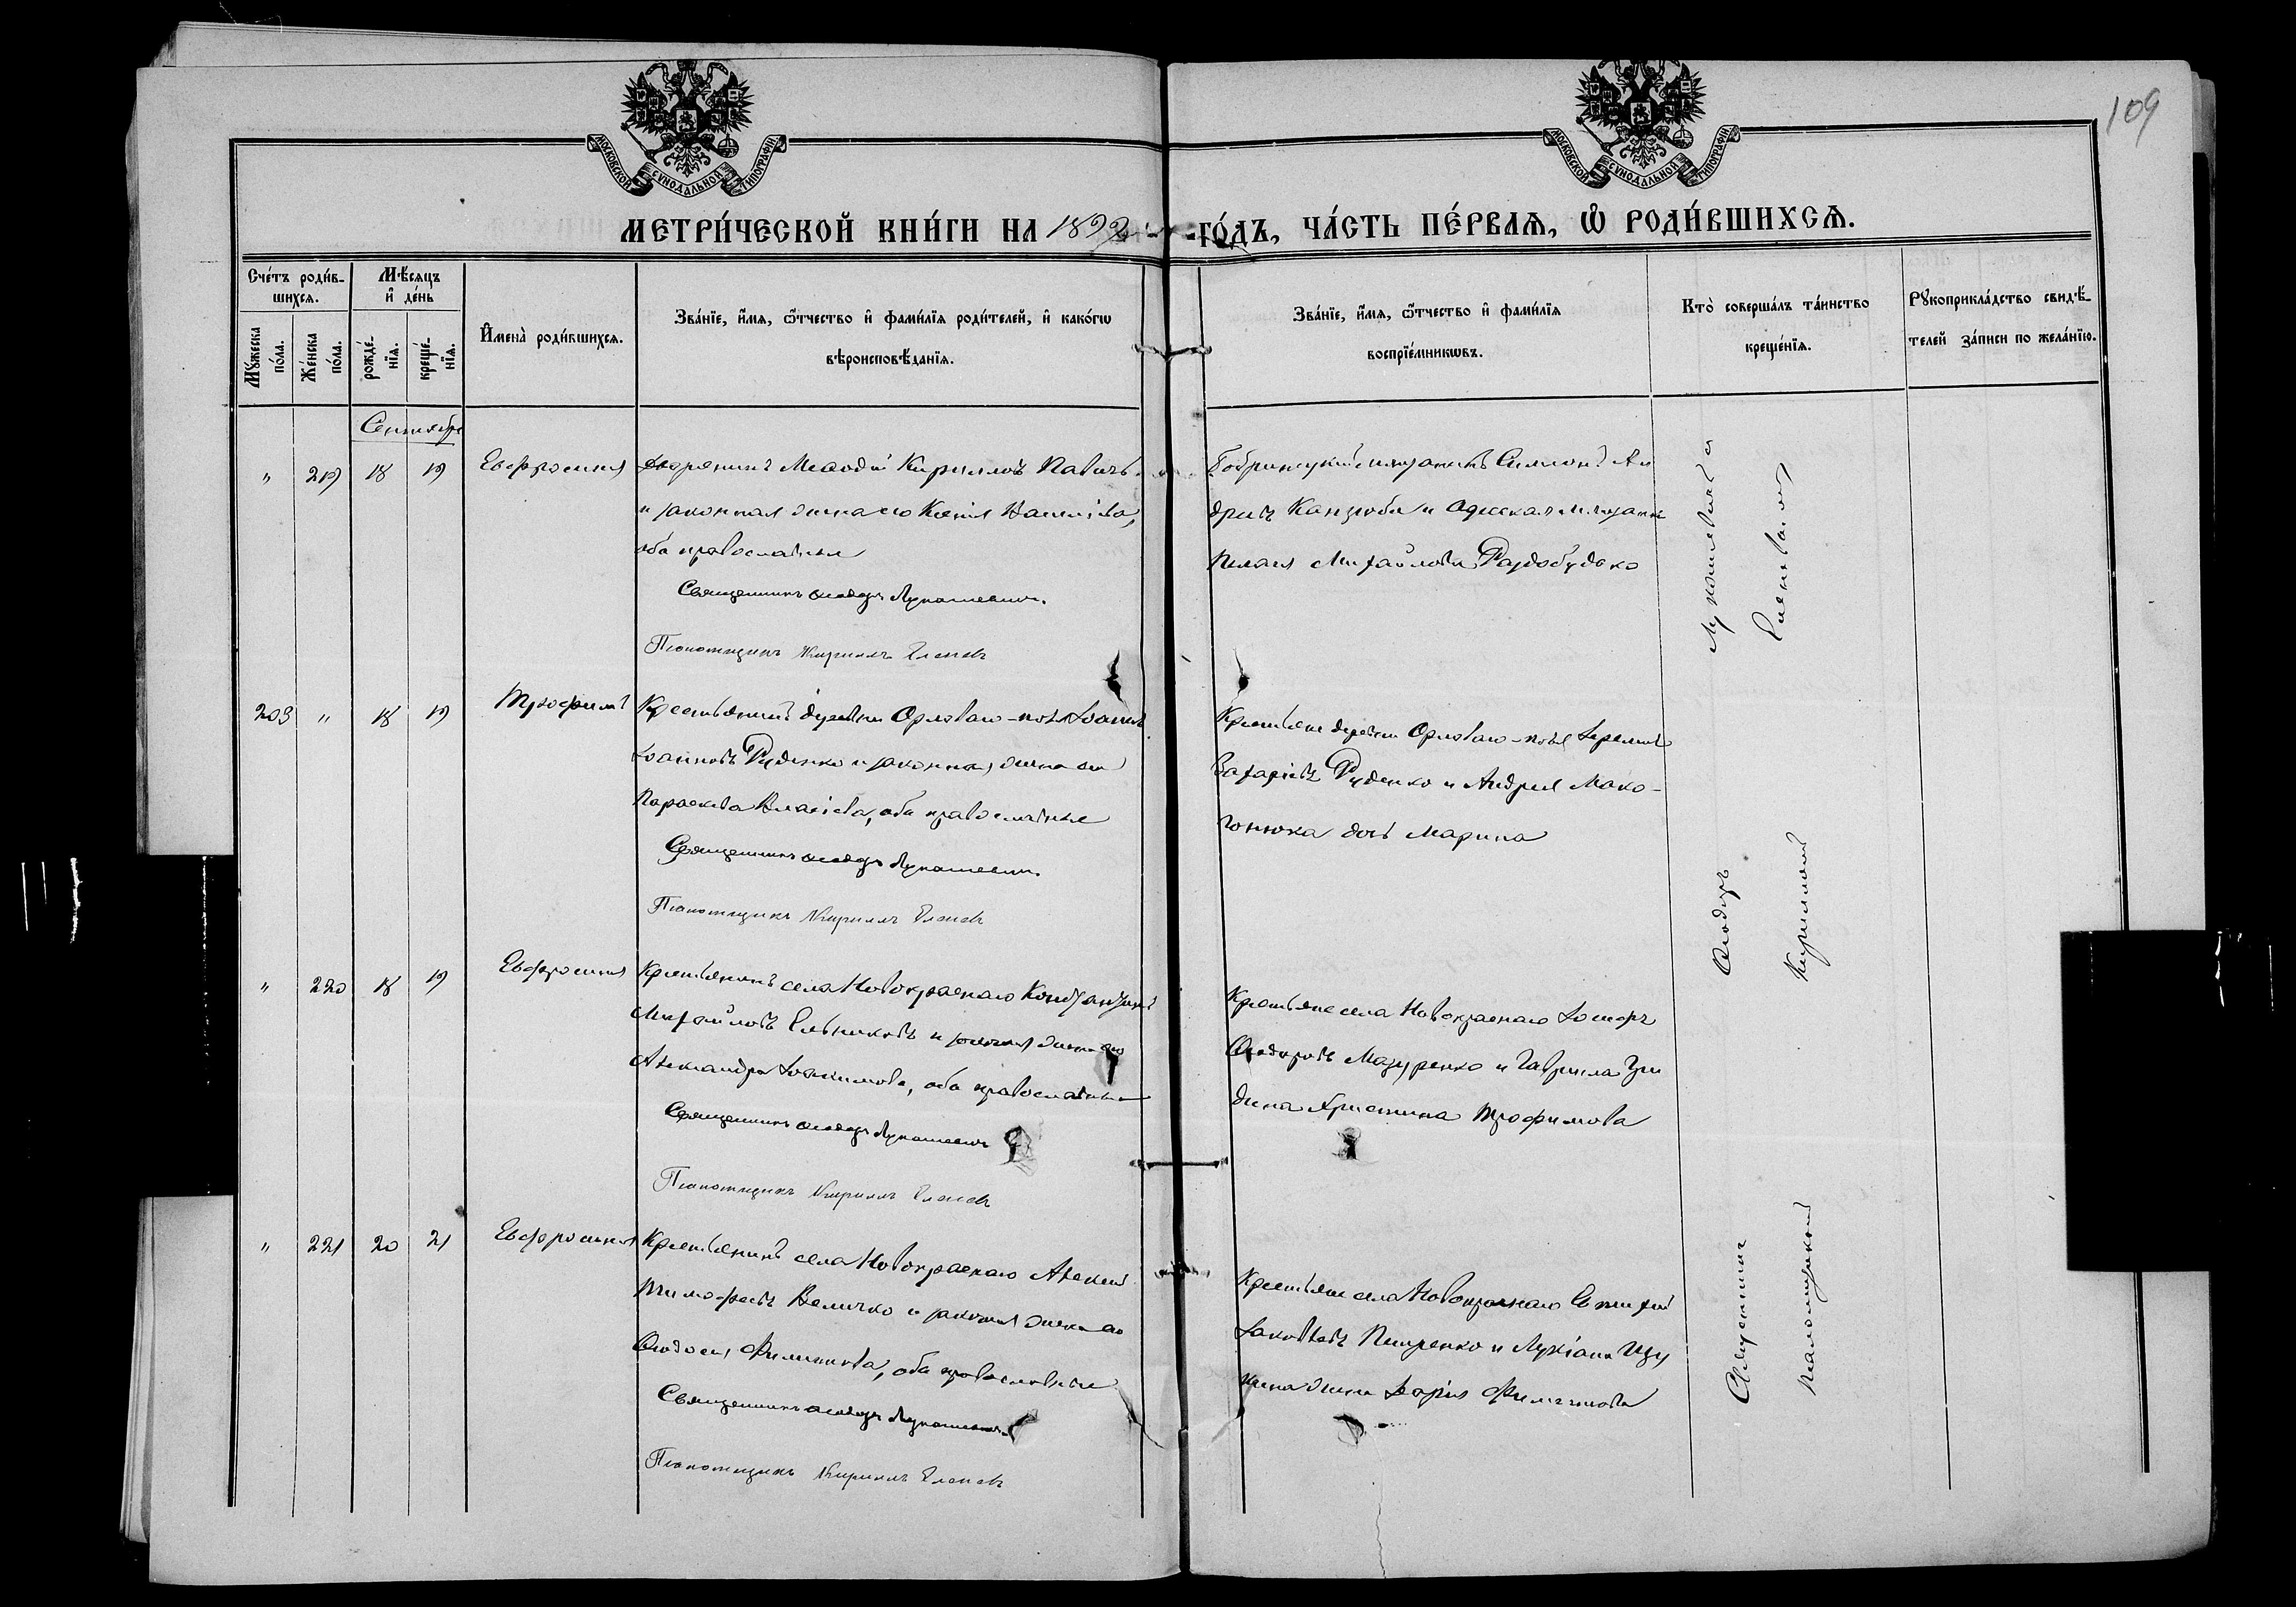 109
МОСКОВСКОЙ СѴНОДАЛЬНОЙ ТИПОГРАФІИ
МОСКОВСКОЙ СѴНОДАЛЬНОЙ ТИПОГРАФІИ
МЕТРИ́ЧЕСКОЙ КНИ́ГИ НА 1892 ГО́ДЪ, ЧА́СТЬ ПЕ́РВАѦ, Ѽ РОДИ́ВШИХСѦ.
Сче́тъ роди́в-
шихсѧ.
Мѣ́сѧцъ
и҆ де́нь
Мꙋ́жеска
по́ла.
Же́нска
по́ла.
рожде́-
нїѧ.
креще́-
нїѧ.
И҆мена̀ роди́вшихсѧ.
Зва́нїе, и҆́мѧ, ѻ҆́тчество и҆ фами́лїѧ роди́телей, и҆ како́гѡ
вѣроисповѣ́данїѧ.
Зва́нїе, и҆́мѧ, ѻ҆́тчество и҆ фами́лїѧ
воспрїе́мникѡвъ.
Кто̀ соверша́лъ та́инство
креще́нїѧ.
Рꙋкоприкла́дство свидѣ́-
телей за́писи по жела́нїю.
Сентябрь
" 219 18 19 Евфросинія
Дворянинъ Меѳодій Кирилловъ
и законная жена его Ксенія
оба православные
Священникъ Ѳеодоръ Лукашевичъ.
Псаломщикъ Кириллъ Еленевъ
Бобринецкій мѣщанинъ Симеонъ Ан
дреевъ Канзюба и Одесская мѣщанка
Пелагія Михайлова Раздобудько
203 " 18 19 Трофимъ
Крестьянинъ деревни Орловаго-поля Іоаннъ
Іоанновъ Руденко и законная жена его
Параскева Власіева, оба православные
Священникъ Ѳеодоръ Лукашевичъ.
Псаломщикъ Кириллъ Еленевъ
Крестьяне деревни Орловаго-поля Іеремія
Захаріевъ Руденко и Андрея Мако-
гонюка дочь Марина
" 220 18 19 Евфросинія
Крестьянинъ села Новокраснаго Константинъ
Михайловъ Ельниковъ и законная жена его
Александра Іоакимова, оба православные
Священникъ Ѳеодоръ Лукашевичъ
Псаломщикъ Кириллъ Еленевъ
Крестьяне села Новокраснаго Іосифъ
Ѳеодоровъ Мазуренко и Гавріила Гри
дина Христина Трофимова
" 221 20 21 Евфросинія
Крестьянинъ села Новокраснаго Алексій
Тимофеевъ Величко и законная жена его
Ѳеодосія Филиппова, оба православные
Священникъ Ѳеодоръ Лукашевичъ.
Псаломщикъ Кириллъ Еленевъ
Крестьяне села Новокраснаго
Іаковлевъ Петренко и Лукіана
жена Дарія Филиппова
Священникъ Ѳеодоръ Лукашевичъ и
Псаломщикъ Кириллъ Еленевъ